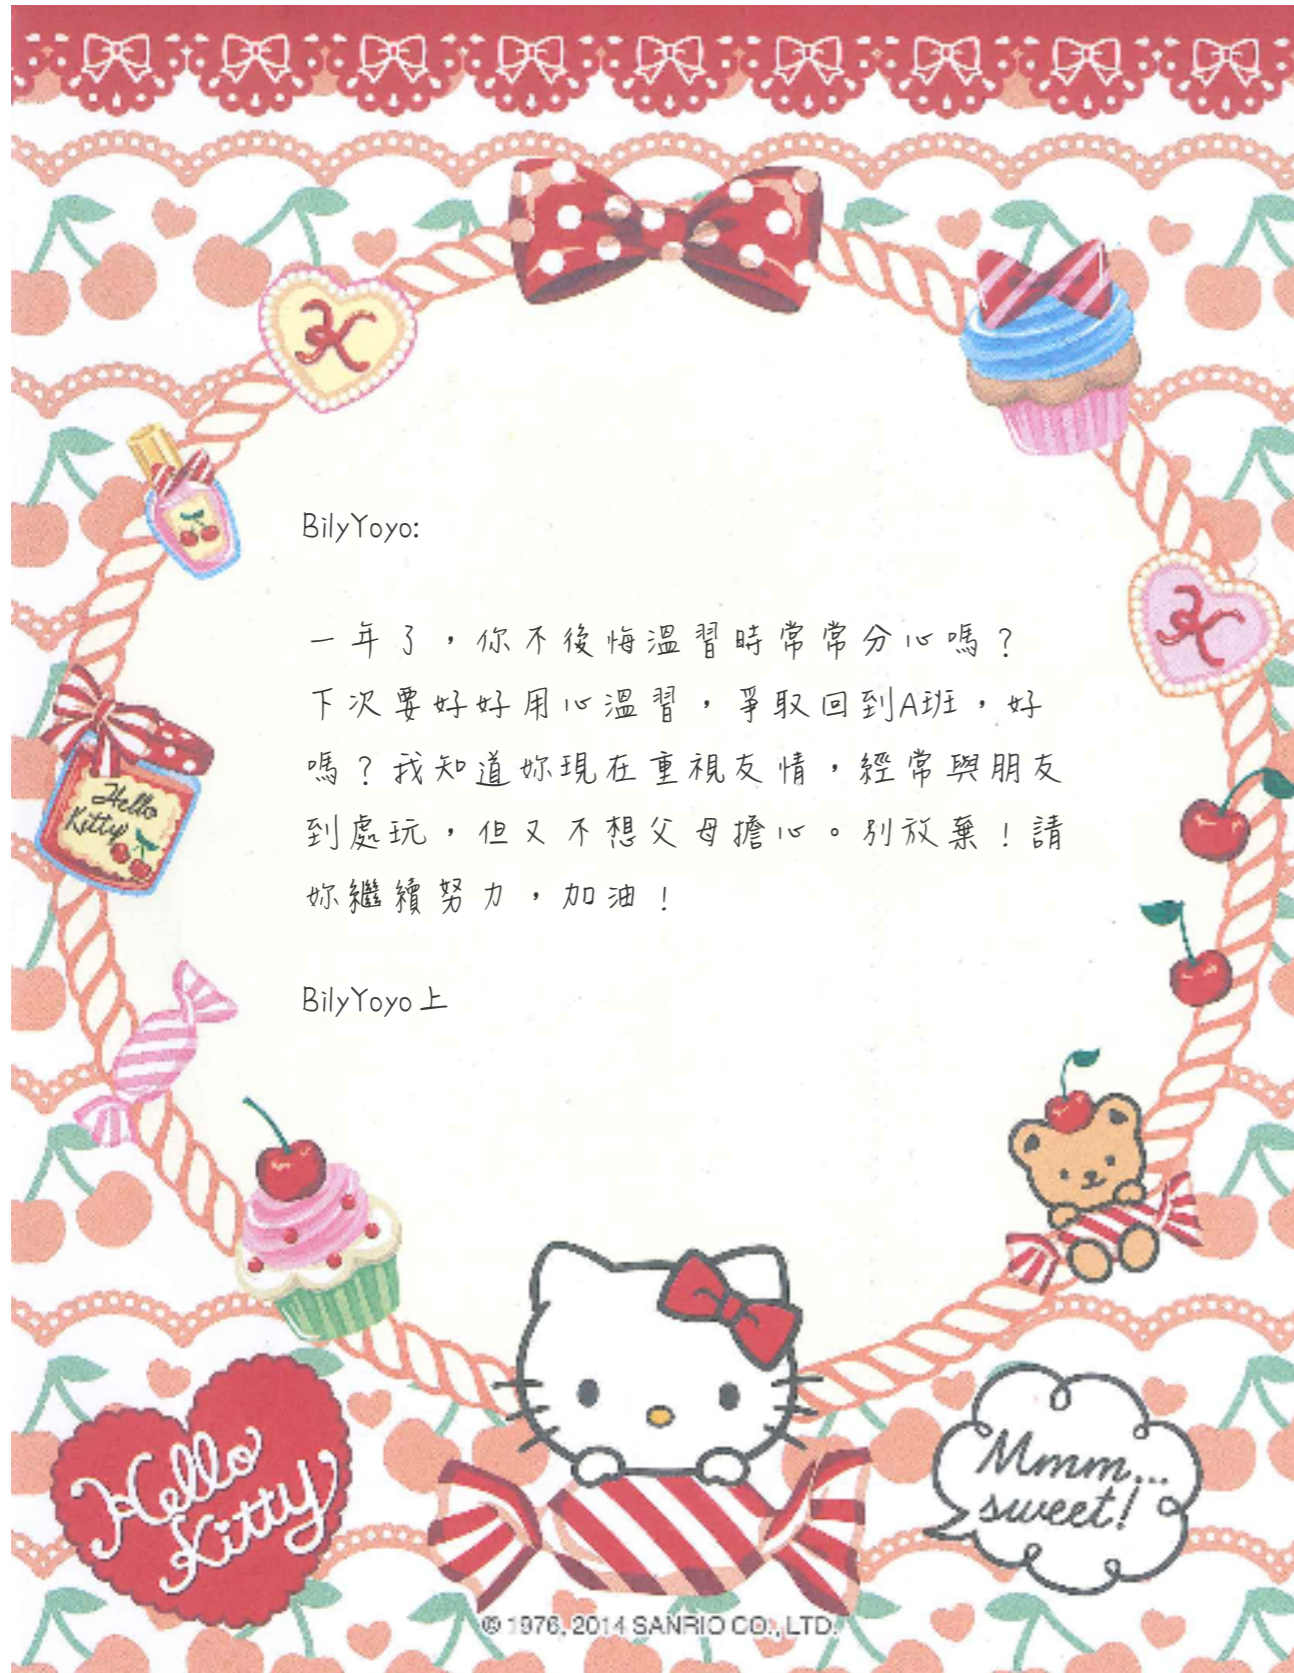 BilyYoyo:
一年了，你不後悔溫習時常常分心嗎？
下次要好好用心溫習，爭取回到A班，好
嗎？我知道妳現在重視友情，經常與朋友
到處玩，但又不想父母擔心。別放棄！請
妳繼續努力，加油！
BilyYoyo上
Hello
Kitty
Hello
Kitty
Mmm...
sweet!
© 1976, 2014 SANRIO CO., LTD.